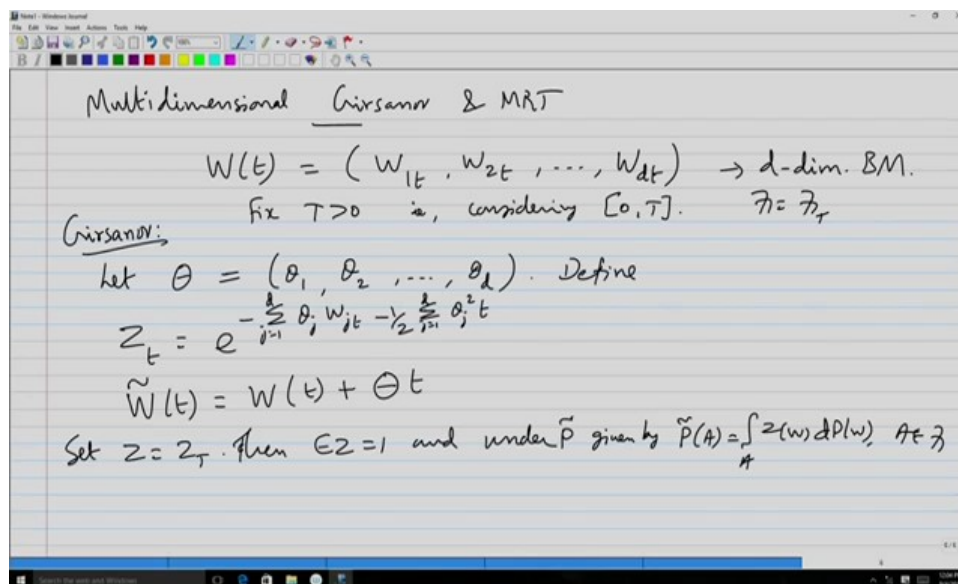 Note1 - Windows Journal
File Edit View Insert Actions Tools Help
B I
Multidimensional Girsanov & MRT
W(t) = (W_{1t}, W_{2t}, ..., W_{dt}) → d-dim. BM.
Fix T>0 ie, considering [0,T]. ℱ = ℱ_T
Girsanov:
Let θ = (θ_1, θ_2, ..., θ_d). Define
Z_t = e^{-∑_{j=1}^{d} θ_j W_{jt} - 1/2 ∑_{j=1}^{d} θ_j^2 t}
W̃(t) = W(t) + Θt
Set Z = Z_T. Then EZ=1 and under P̃ given by P̃(A) = ∫_A Z(w) dP(w), A∈ℱ
Search the web and Windows